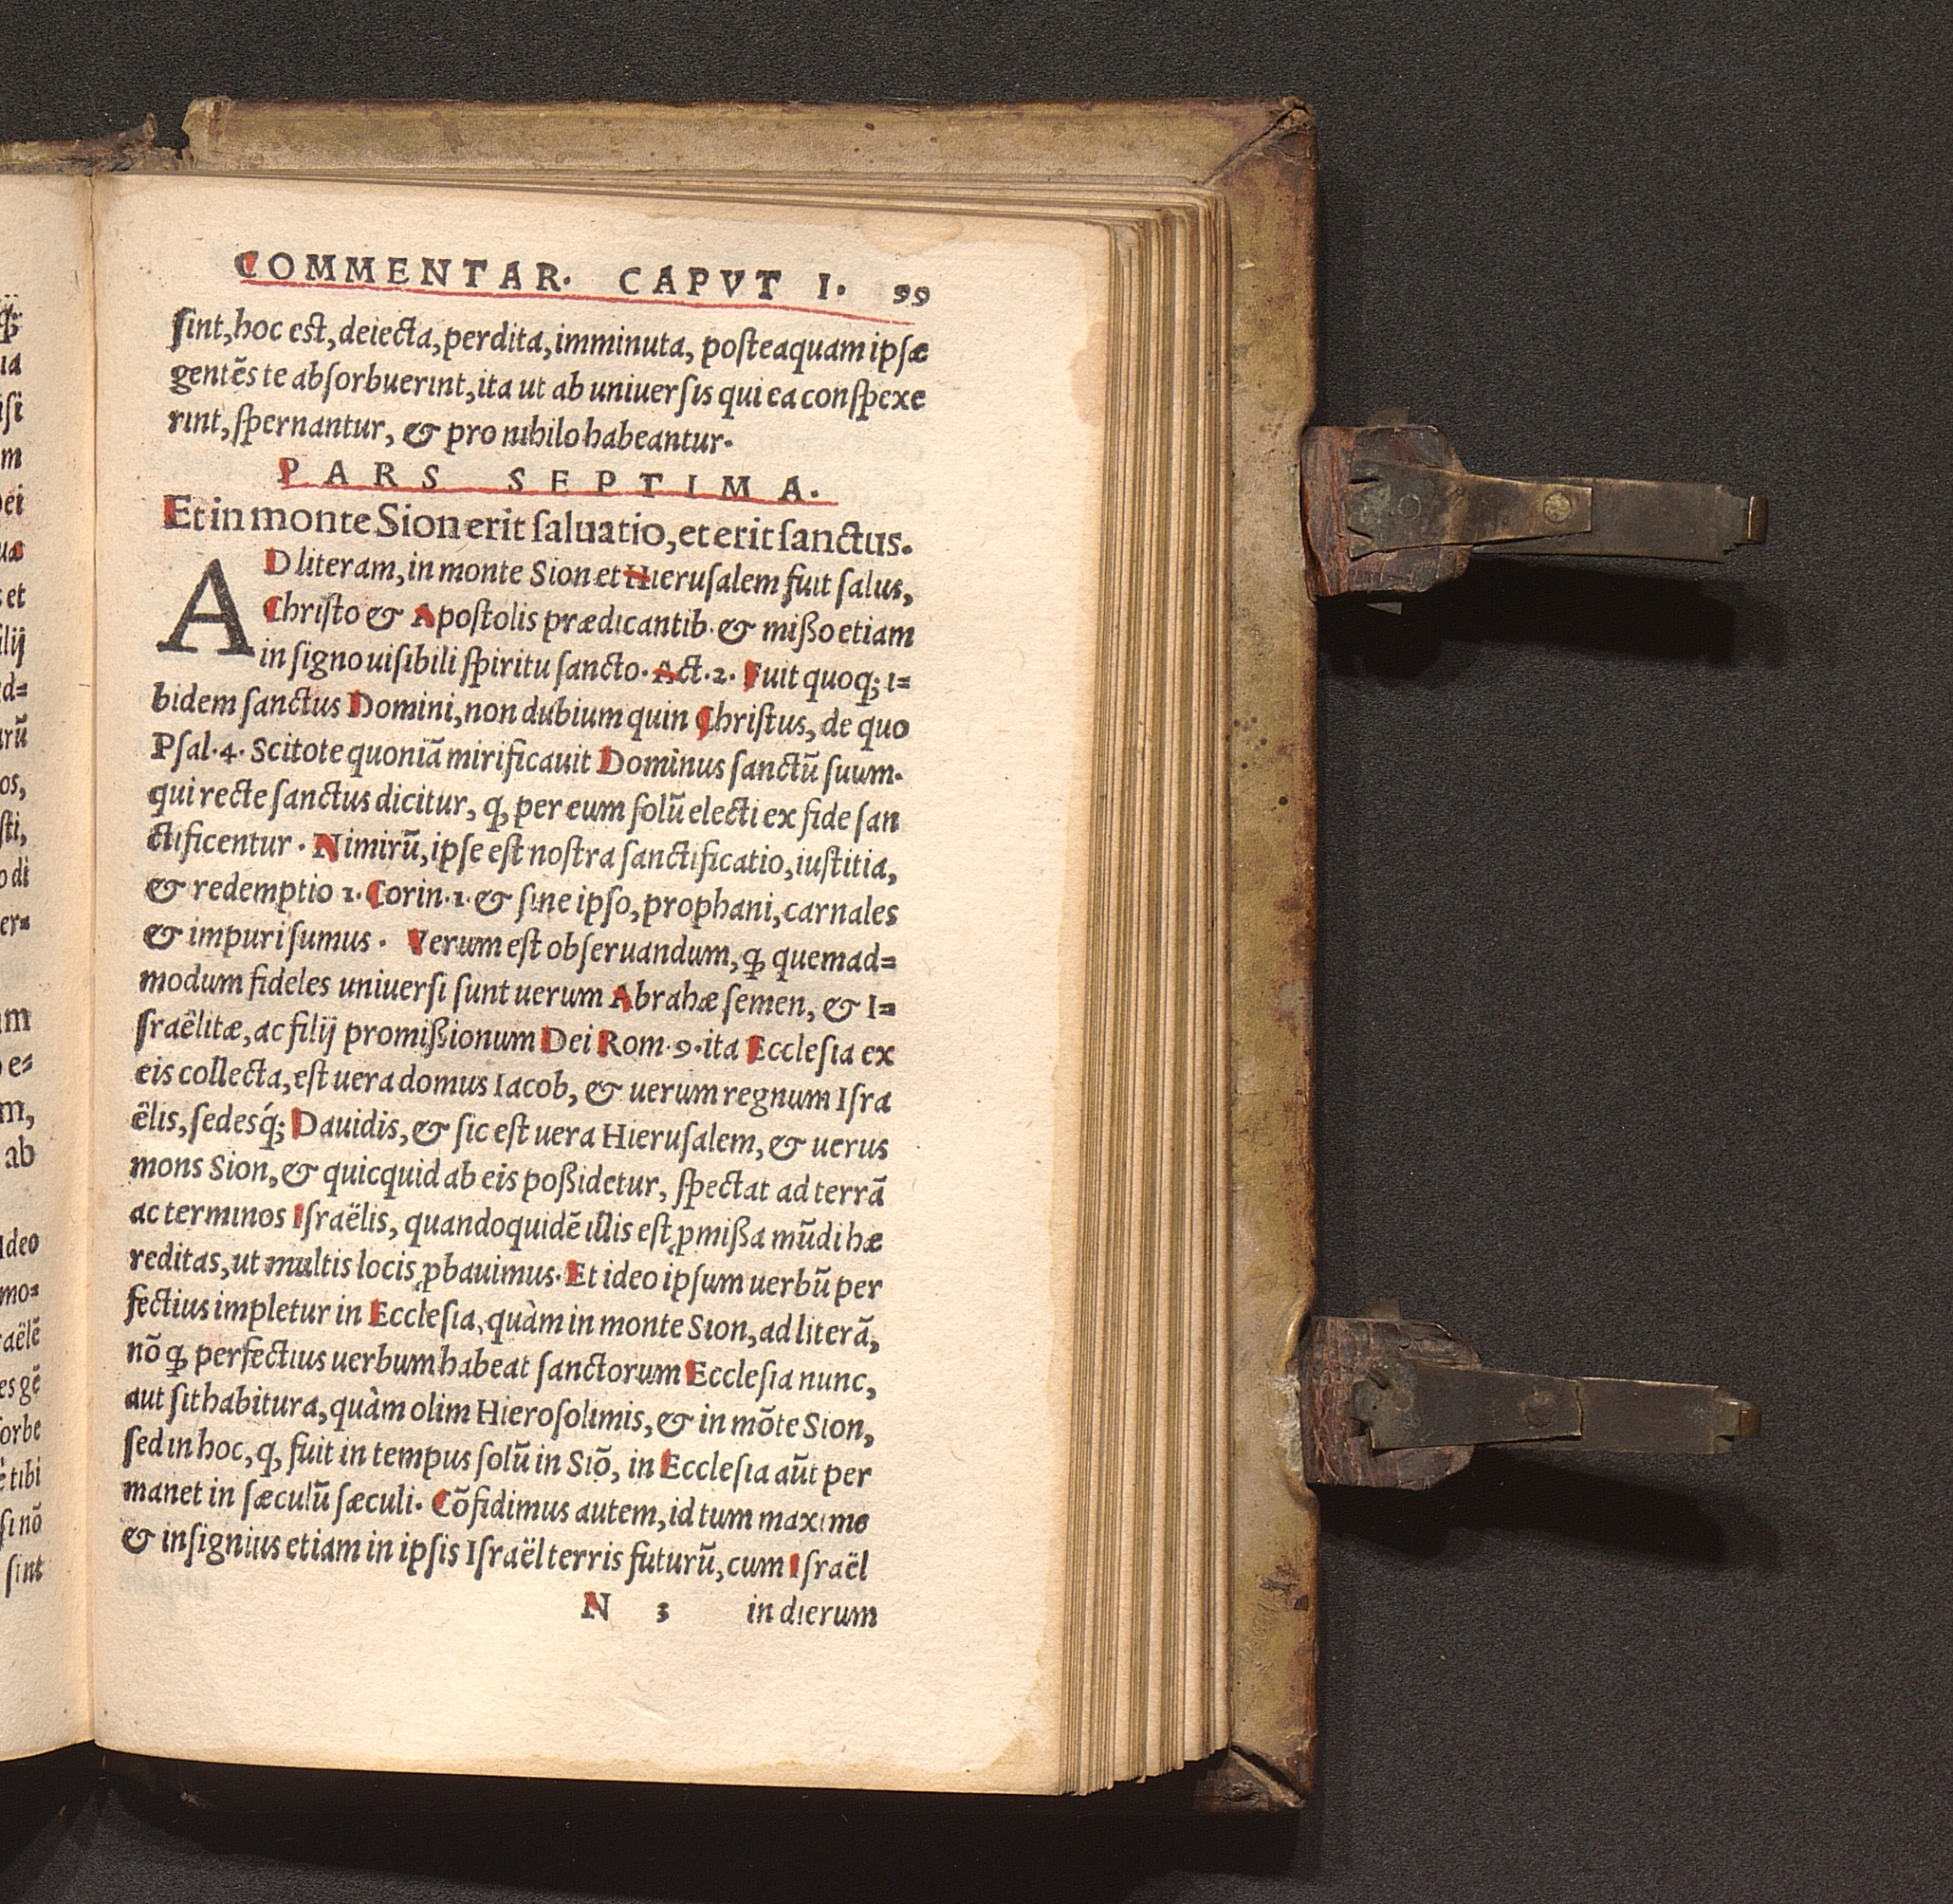 COMMENTAR. CAPVT I. 99
ſint, hoc est, deiecta, perdita, imminuta, poſteaquam ipſæ
gentẽs te abſorbuerint, ita ut ab uniuerſis qui ea conſpexe
rint, ſpernantur, & pro nihilo habeantur.
PARS SEPTIMA.
Et in monte Sion erit ſaluatio, et erit ſanctus.
AD literam, in monte Sion et Hieruſalem fuit ſalus,
Chriſto & Apoſtolis prædicantib. & mißo etiam
in ſigno uiſibili ſpiritu ſancto. Act. 2. Fuit quoq; i=
bidem ſanctus Domini, non dubium quin Chriſtus, de quo
Pſal. 4. Scitote quoniã mirificauit Dominus ſanctũ ſuum.
qui recte ſanctus dicitur, ꝙ per eum ſolũ electi ex fide ſan
ctificentur. Nimirũ, ipſe eſt noſtra ſanctificatio, iuſtitia,
& redemptio 1. Corin. 1. & ſine ipſo, prophani, carnales
& impuri ſumus. Verum eſt obſeruandum, ꝙ quemad=
modum fideles uniuerſi ſunt uerum Abrahæ ſemen, & I=
ſraëlitæ, ac filij promißionum Dei Rom. 9. ita Eccleſia ex
eis collecta, eſt uera domus Iacob, & uerum regnum Iſra
ëlis, ſedesq́; Dauidis, & ſic eſt uera Hieruſalem, & uerus
mons Sion, & quicquid ab eis poßidetur, ſpectat ad terrã
ac terminos Iſraëlis, quandoquidẽ illis eſt ꝓmißa mũdi hæ
reditas, ut multis locis ꝓbauimus. Et ideo ipſum uerbũ per
fectius impletur in Eccleſia, quàm in monte Sion, ad literã,
nõ ꝙ perfectius uerbum habeat ſanctorum Eccleſia nunc,
aut ſit habitura, quàm olim Hieroſolimis, & in mõte Sion,
ſed in hoc, ꝙ, fuit in tempus ſolũ in Siõ, in Eccleſia aũt per
manet in ſæculũ ſæculi. Cõfidimus autem, id tum maxime
& inſignius etiam in ipſis Iſraël terris futurũ, cum Iſraël
N 3 in dierum